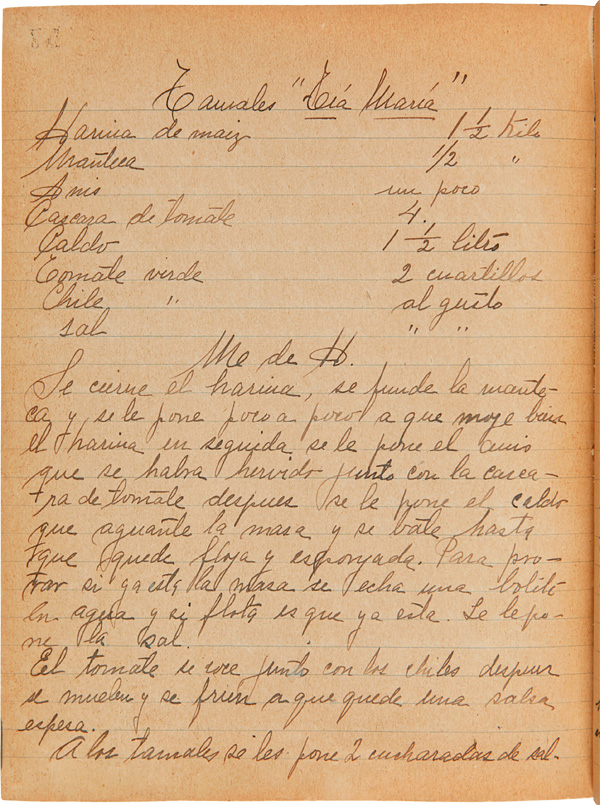 Tamales "Tía María"
Harina de maiz 1 ½ Kilo
Manteca ½ "
Anis un poco
Cascara de tomate 4.
Caldo 1 ½ litro
Tomate virde 2 cuartillos
Chile " al gusto
sal " "
Mo de H.
Se cierne el harina, se funde la mante-
ca y se le pone poco a poco a que moje bien
el harina en seguida se le pone el anis
que se habra hervido junto con la casca-
ra de tomate despues se le pone el caldo
que aguante la masa y se bate hasta
que quede floja y esponjada. Para pro-
var si ya esta la masa se echa una bolita
en agua y si flota es que ya esta. Se le po-
ne la sal.
El tomate se coce junto con los chiles despues
se muelen y se frien a que quede una salsa
espesa.
A los tamales se les pone 2 cucharadas de sal-